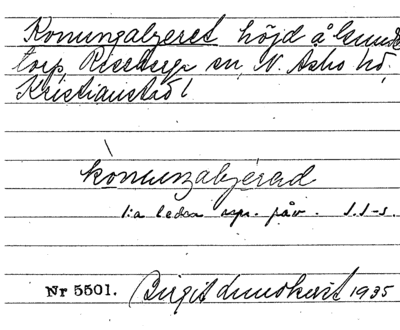 Konungabjeret höjd å Gunnars
torp Riseberga sn, N. Åsbo hd.
Kristianstad l
kònunzabjérəd
1:a leden rspr. påv. J.J-s.
Nr 5501. Birgit Lundkvist 1935